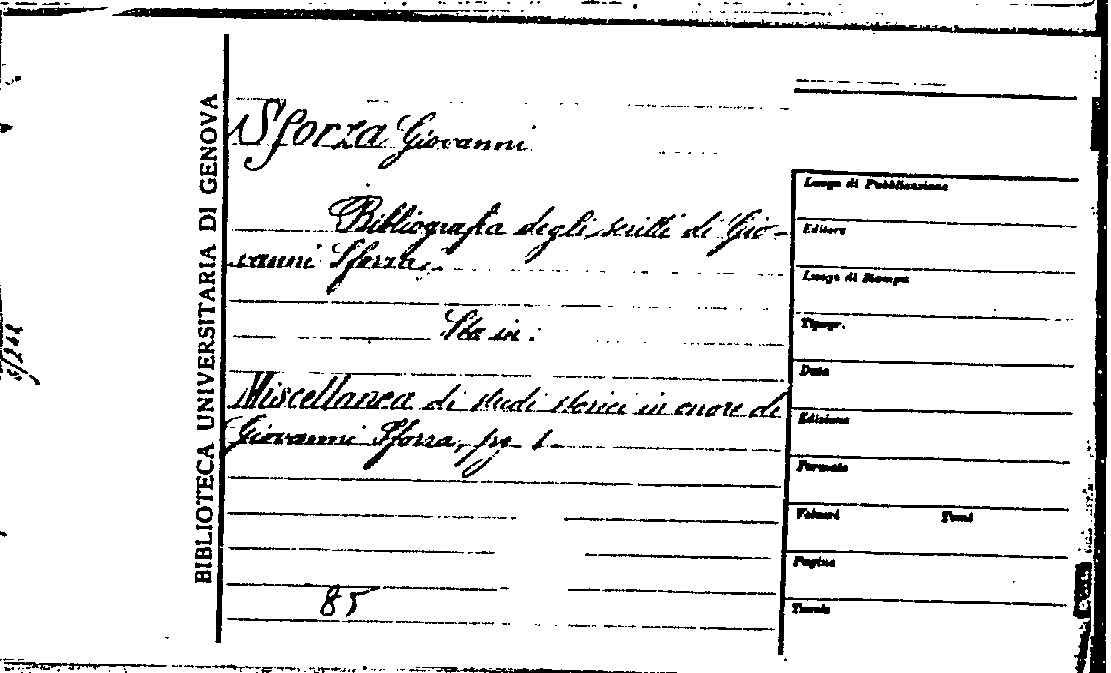 BIBLIOTECA UNIVERSITARIA DI GENOVA
Sforza Giovanni
Bibliografia degli scritti di Gio-
vanni Sforza.
Sta in:
Miscellanea di studi storici in onore di
Giovanni Sforza, pg. 1
85
Luogo di Pubblicazione
Editore
Luogo di Stampa
Tipogr.
Data
Edizione
Formato
Volumi Tomi
Pagine
Tavole